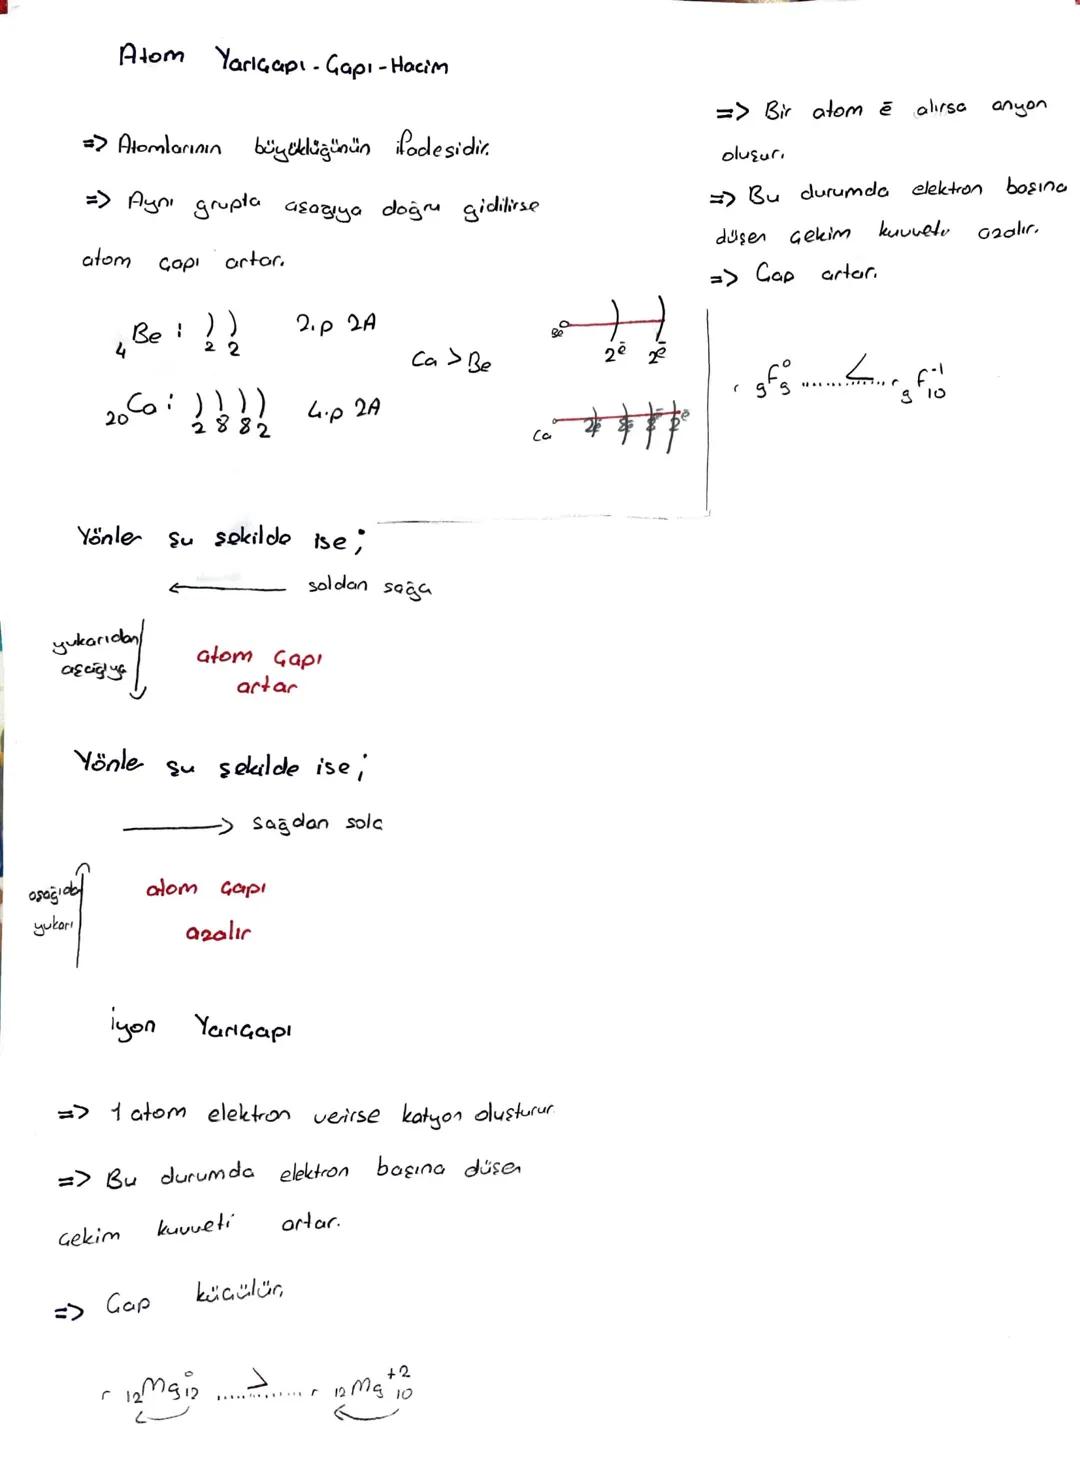 Atom Yarıçapı - Çapı - Hacim
=> Atomlarının büyüklüğünün ifadesidir.
=> Aynı grupta aşağıya doğru gidilirse
atom çapı artar.
₄Be : ) ) 2.p 2A
2 2
Ca > Be
₂₀Ca : ) ) ) ) 4.p 2A
2 8 8 2
Be
2ē 2ē
Ca
2ē 8ē 8ē 2ē
=> Bir atom ē alırsa anyon
oluşur.
=> Bu durumda elektron başına
düşen çekim kuvveti azalır.
=> Çap artar.
r ₉F₉⁰ ......<...... r ₉F₁₀⁻¹
Yönler şu şekilde ise;
← soldan sağa
yukarıdan
aşağıya
atom çapı
artar
Yönler şu şekilde ise;
→ sağdan sola
aşağıdan
yukarı
atom çapı
azalır
İyon Yarıçapı
=> 1 atom elektron verirse katyon oluşturur.
=> Bu durumda elektron başına düşen
çekim kuvveti artar.
=> Çap küçülür.
r ₁₂Mg₁₂⁰ ......>...... r ₁₂Mg₁₀⁺²